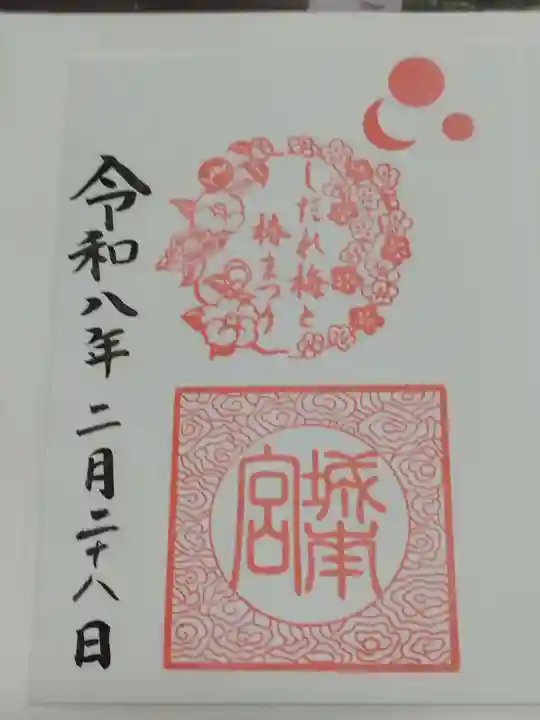 しだれ梅と
椿まつり
城南
宮
令和八年二月二十八日